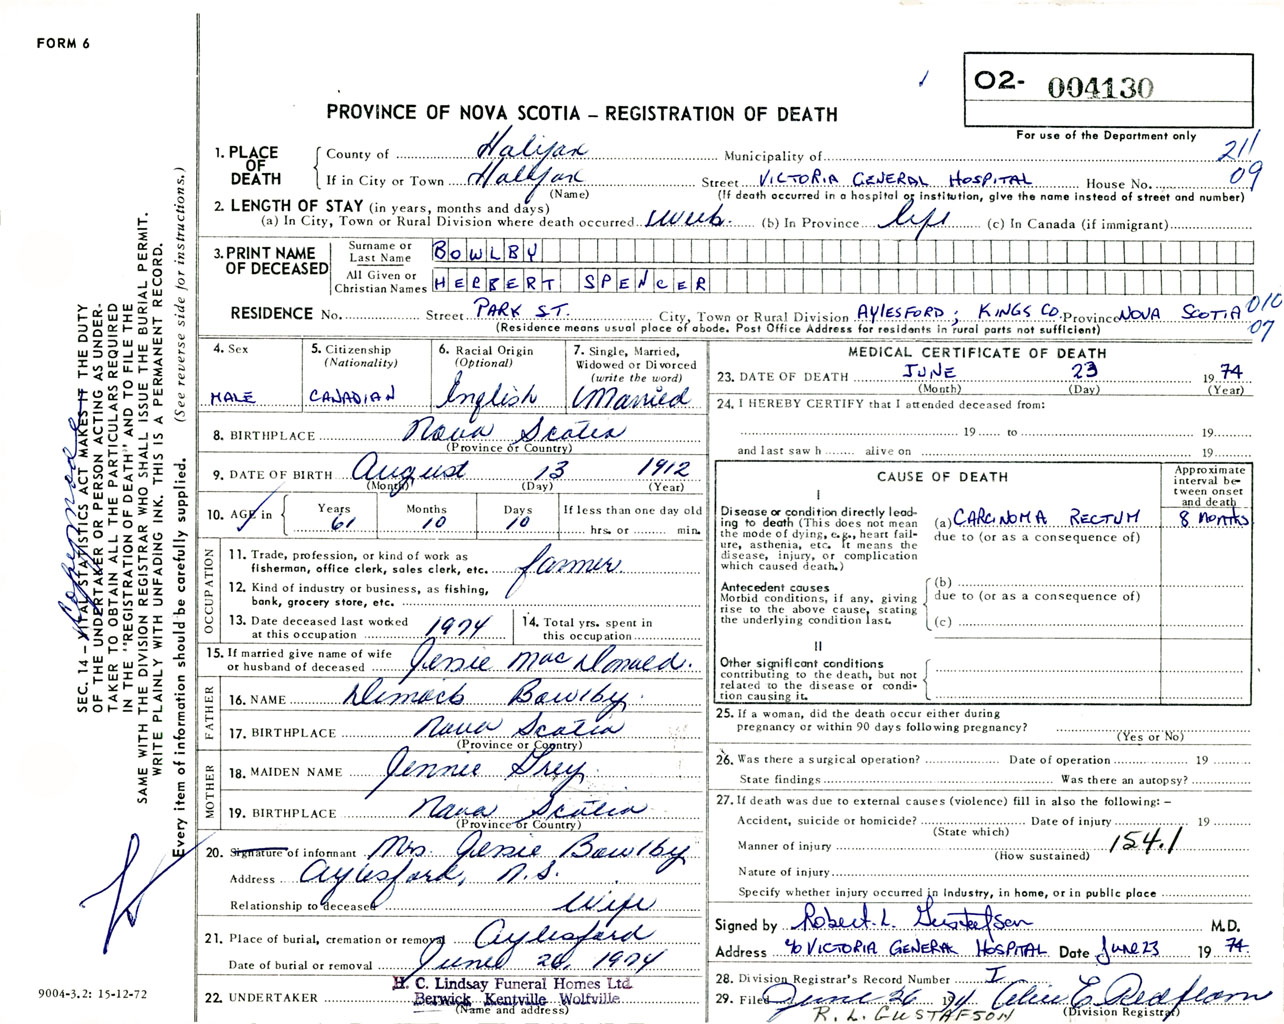 FORM 6
02- 004130
For use of the Department only
PROVINCE OF NOVA SCOTIA – REGISTRATION OF DEATH
211
09
1. PLACE OF DEATH
County of Halifax Municipality of
If in City or Town Halifax Street VICTORIA GENERAL HOSPITAL House No.
(Name) (If death occurred in a hospital or institution, give the name instead of street and number)
2. LENGTH OF STAY (in years, months and days)
(a) In City, Town or Rural Division where death occurred 1 week. (b) In Province life (c) In Canada (if immigrant)
3. PRINT NAME OF DECEASED
Surname or Last Name BOWLBY
All Given or Christian Names HERBERT SPENCER
RESIDENCE No. Street PARK ST. City, Town or Rural Division AYLESFORD; KINGS CO. Province NOVA SCOTIA 010
07
(Residence means usual place of abode. Post Office Address for residents in rural parts not sufficient)
4. Sex
MALE
5. Citizenship
(Nationality)
CANADIAN
6. Racial Origin
(Optional)
English
7. Single, Married,
Widowed or Divorced
(write the word)
Married
8. BIRTHPLACE Nova Scotia
(Province or Country)
9. DATE OF BIRTH August 13 1912
(Month) (Day) (Year)
10. AGE in
Years Months Days If less than one day old
61 10 10 hrs. or min.
OCCUPATION
11. Trade, profession, or kind of work as
fisherman, office clerk, sales clerk, etc. farmer.
12. Kind of industry or business, as fishing,
bank, grocery store, etc.
13. Date deceased last worked
at this occupation 1974
14. Total yrs. spent in
this occupation
15. If married give name of wife
or husband of deceased Jessie MacDonald.
FATHER
16. NAME Dimock Bowlby
17. BIRTHPLACE Nova Scotia
(Province or Country)
MOTHER
18. MAIDEN NAME Jennie Grey
19. BIRTHPLACE Nova Scotia
(Province or Country)
20. Signature of informant Mrs. Jessie Bowlby
Address Aylesford, N.S.
Relationship to deceased Wife
21. Place of burial, cremation or removal Aylesford
Date of burial or removal June 26, 1974
22. UNDERTAKER
H. C. Lindsay Funeral Homes Ltd.
Berwick Kentville Wolfville
(Name and address)
MEDICAL CERTIFICATE OF DEATH
23. DATE OF DEATH JUNE 23 1974
(Month) (Day) (Year)
24. I HEREBY CERTIFY that I attended deceased from:
19 to 19
and last saw h alive on 19
CAUSE OF DEATH
Approximate
interval be-
tween onset
and death
I
Disease or condition directly lead-
ing to death (This does not mean
the mode of dying, e.g., heart fail-
ure, asthenia, etc. It means the
disease, injury, or complication
which caused death.)
(a) CARCINOMA RECTUM 8 MONTHS
due to (or as a consequence of)
Antecedent causes
Morbid conditions, if any, giving
rise to the above cause, stating
the underlying condition last.
(b)
due to (or as a consequence of)
(c)
II
Other significant conditions
contributing to the death, but not
related to the disease or condi-
tion causing it.
25. If a woman, did the death occur either during
pregnancy or within 90 days following pregnancy?
(Yes or No)
26. Was there a surgical operation? Date of operation 19
State findings Was there an autopsy?
27. If death was due to external causes (violence) fill in also the following: –
Accident, suicide or homicide? Date of injury 19
(State which)
Manner of injury 154.1
(How sustained)
Nature of injury
Specify whether injury occurred in industry, in home, or in public place
Signed by Robert L. Gustafson M.D.
Address c/o VICTORIA GENERAL HOSPITAL Date June 23 1974.
28. Division Registrar's Record Number I
29. Filed June 26 1974 Alice E. Redfearn
(Division Registrar)
R. L. GUSTAFSON
SEC. 14 – VITAL STATISTICS ACT MAKES IT THE DUTY
OF THE UNDERTAKER OR PERSON ACTING AS UNDER-
TAKER TO OBTAIN ALL THE PARTICULARS REQUIRED
IN THE "REGISTRATION OF DEATH" AND TO FILE THE
SAME WITH THE DIVISION REGISTRAR WHO SHALL ISSUE THE BURIAL PERMIT.
WRITE PLAINLY WITH UNFADING INK. THIS IS A PERMANENT RECORD.
Every item of information should be carefully supplied. (See reverse side for instructions.)
9004-3.2: 15-12-72